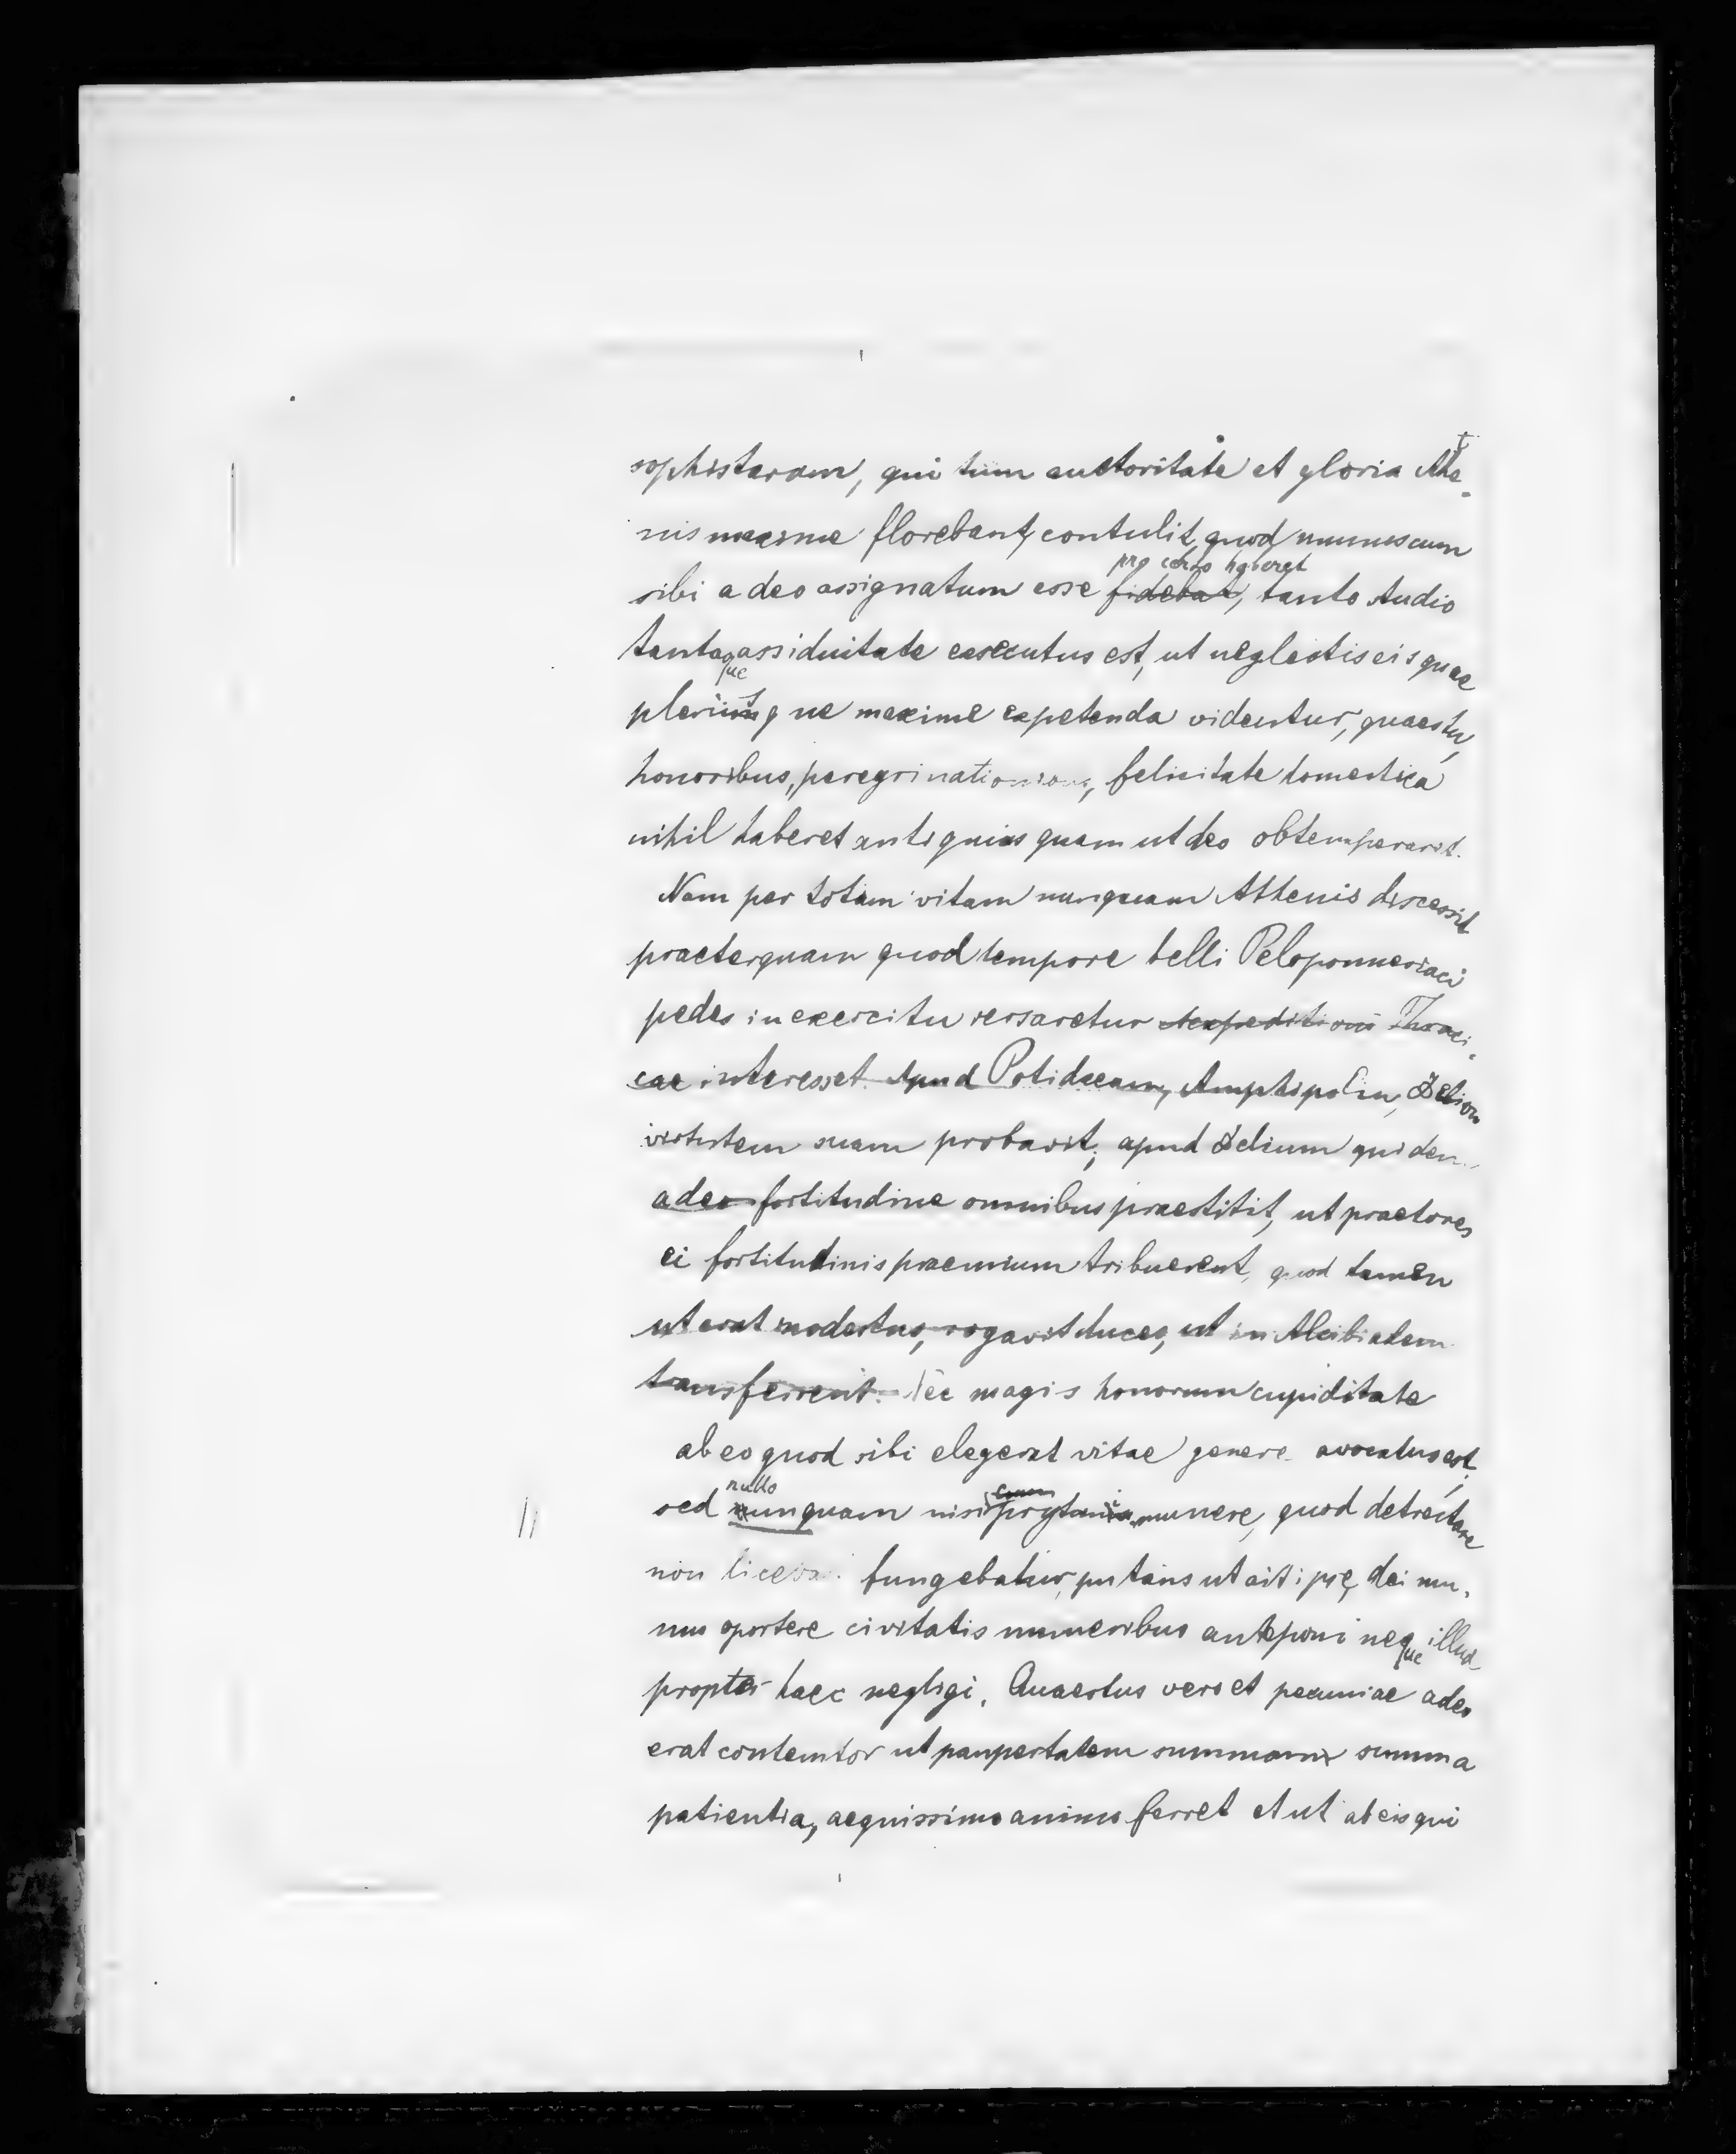 sophistarum, qui tum auctoritate et gloria Athe-
nis maxime florebant, contulit, quod munus cum
pro certo haberet
sibi a deo assignatum esse fidebat, tanto studio
tantaque assiduitate exsecutus est, ut neglectis eis quae
plerisque maxime expetenda videntur, quaestu,
honoribus, peregrinationibus, felicitate domestica
nihil haberet antiquius quam ut deo obtemperaret.
Nam per totam vitam nunquam Athenis discessit
praeterquam quod tempore belli Peloponnesiaci
pedes in exercitu versaretur et expeditioni Thraci-
cae interesset. Apud Potidaeam, Amphipolin, Delion
virtutem suam probavit; apud Delium quidem
adeo fortitudine omnibus praestitit, ut praetores
ei fortitudinis praemium tribuerent, quod tamen
ut erat modestus, rogavit duces, ut in Alcibiadem
transferrent. Nec magis honorum cupiditate
ab eo quod sibi elegerat vitae genere avocatus est,
nullo
sed nunquam nisi prytania munere, quod detrectare
non fungebatur, putans ut ait ipse, dei mu-
nus oportere civitatis muneribus anteponi neque illud
propter haec negligi. Quaestus vero et pecuniae adeo
erat contemtor ut paupertatem summam summa
patientia, aequissimo animo ferret et ut ab eis qui